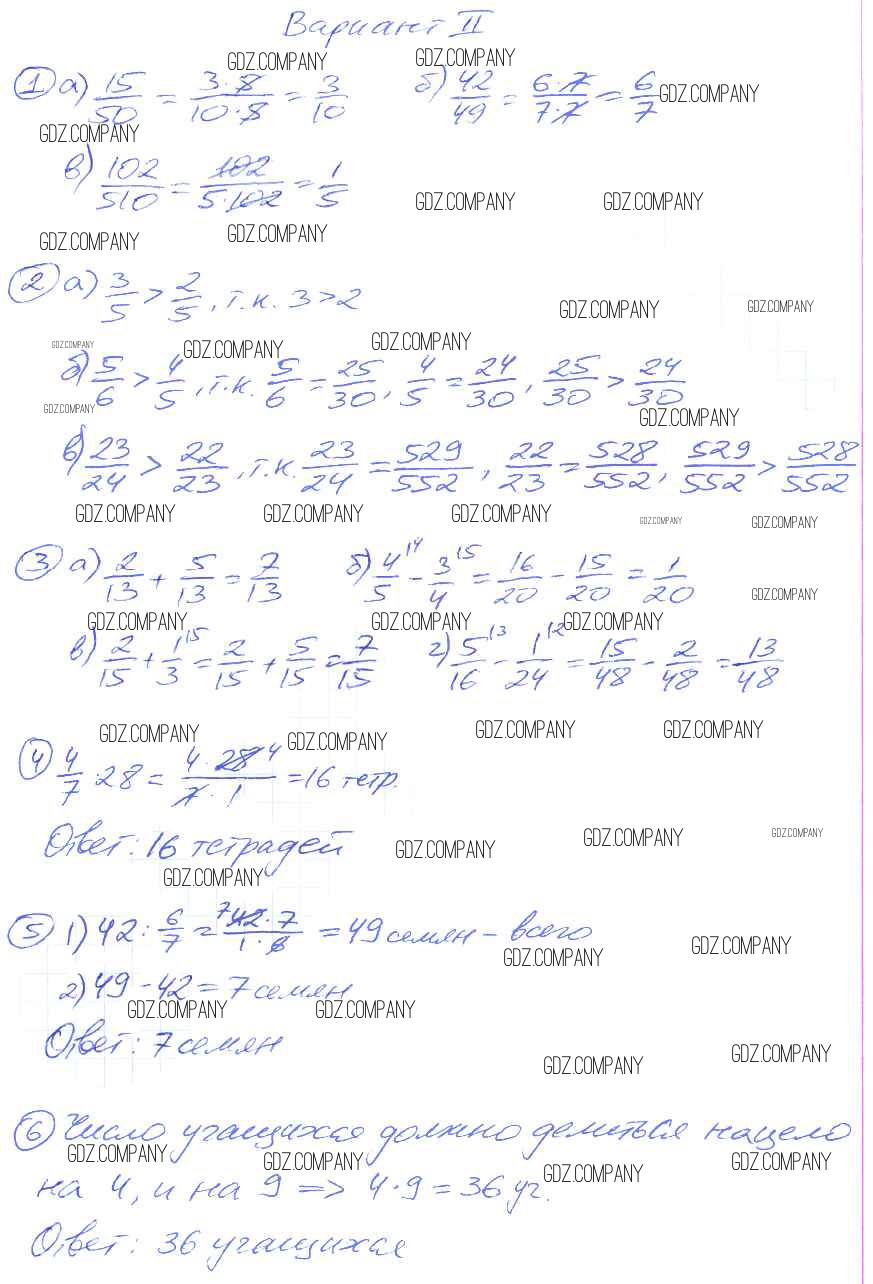 Вариант II
GDZ.COMPANY GDZ.COMPANY
① а) 15/50 = 3·5/10·5 = 3/10 б) 42/49 = 6·7/7·7 = 6/7 GDZ.COMPANY
GDZ.COMPANY
в) 102/510 = 102/5·102 = 1/5
GDZ.COMPANY GDZ.COMPANY
GDZ.COMPANY GDZ.COMPANY
② а) 3/5 > 2/5, т.к. 3 > 2
GDZ.COMPANY GDZ.COMPANY
GDZ.COMPANY GDZ.COMPANY GDZ.COMPANY
б) 5/6 > 4/5, т.к. 5/6 = 25/30, 4/5 = 24/30, 25/30 > 24/30
GDZ.COMPANY GDZ.COMPANY
в) 23/24 > 22/23, т.к. 23/24 = 529/552, 22/23 = 528/552, 529/552 > 528/552
GDZ.COMPANY GDZ.COMPANY GDZ.COMPANY GDZ.COMPANY GDZ.COMPANY
③ а) 2/13 + 5/13 = 7/13 б) 4/5 \4 - 3/4 \5 = 16/20 - 15/20 = 1/20
GDZ.COMPANY
GDZ.COMPANY GDZ.COMPANY GDZ.COMPANY
в) 2/15 + 1/3 \5 = 2/15 + 5/15 = 7/15 г) 5/16 \3 - 1/24 \2 = 15/48 - 2/48 = 13/48
GDZ.COMPANY GDZ.COMPANY GDZ.COMPANY GDZ.COMPANY
④ 4/7 · 28 = 4·28 4/7·1 = 16 тетр.
Ответ: 16 тетрадей
GDZ.COMPANY GDZ.COMPANY GDZ.COMPANY
GDZ.COMPANY
⑤ 1) 42 : 6/7 = 7 42·7/1·6 = 49 семян - всего
GDZ.COMPANY GDZ.COMPANY
2) 49 - 42 = 7 семян
GDZ.COMPANY GDZ.COMPANY
Ответ: 7 семян
GDZ.COMPANY GDZ.COMPANY
⑥ Число учащихся должно делиться нацело
GDZ.COMPANY GDZ.COMPANY GDZ.COMPANY GDZ.COMPANY
на 4, и на 9 => 4·9 = 36 уч.
Ответ: 36 учащихся